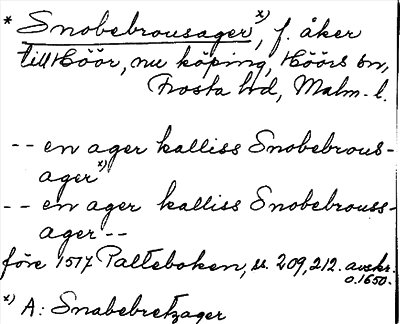 * Snobebrousager x), f. åker
till Höör, nu köping, Höörs sn,
Frosta hd, Malm. l.
-- en ager kalliss Snobebrous-
ager x)
-- en ager kalliss Snobebrouss-
ager --
före 1517 Palteboken, s. 209, 212. avskr.
o. 1650.
x) A: Snabebretzager